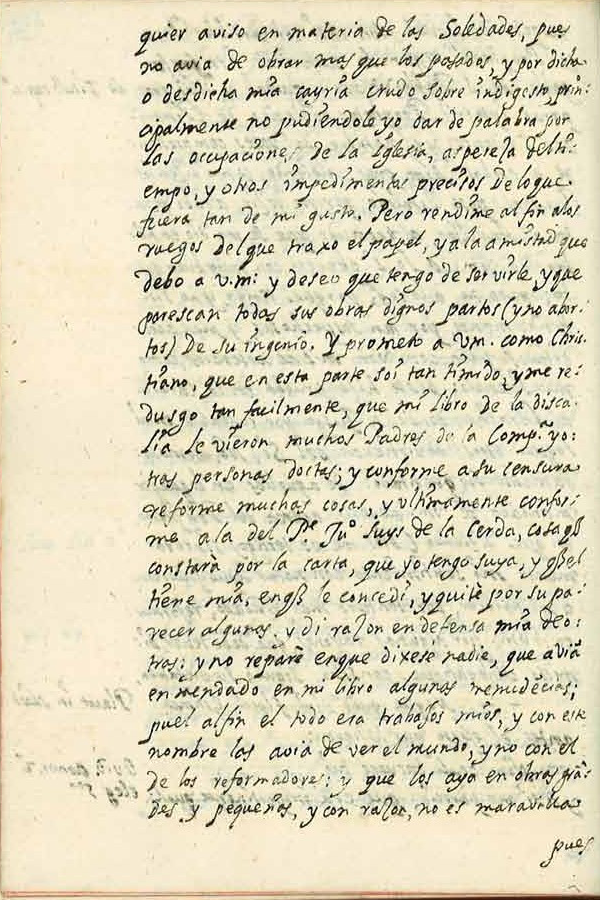 quier aviso en materia de las Soledades, pues
no avia de obrar mas que los pasados, y por dicha
o desdicha mia cayria crudo sobre indigesto, prin:
cipalmente no pudiendolo yo dar de palabra por
las ocupaciones de la Iglesia, aspereza del ti:
empo, y otros impedimentos precisos de lo que
fuera tan de mi gusto. Pero rendime al fin a los
ruegos del que traxo el papel, y a la amistad que
debo a v.m: y deseo que tengo de servirle, y que
parescan todas sus obras dignos partos (y no abor:
tos) de su ingenio. Y prometo a vm. como Chris:
tiano, que en esta parte soi tan timido, y me re:
dusgo tan facilmente, que mi libro de la disca:
lia le vieron muchos Padres de la Comp.a y o:
tras personas doctas; y conforme a su censura
reforme muchas cosas, y ultimamente confor:
me a la del P.e Ju.o Luys de la Cerda, cosa q
constarà por la carta, que yo tengo suya, y q el
tiene mia, en q le concedi, y quitè por su pa:
recer algunas, y di razon en defensa mia de o:
tras: y no reparè en que dixese nadie, que avia
enmendado en mi libro algunas menudecias;
pues al fin el todo era trabajos mios, y con este
nombre las avia de ver el mundo, y no con el
de los reformadores: y que los aya en obras grã:
des y pequeñas, y con razon, no es maravilla
pues